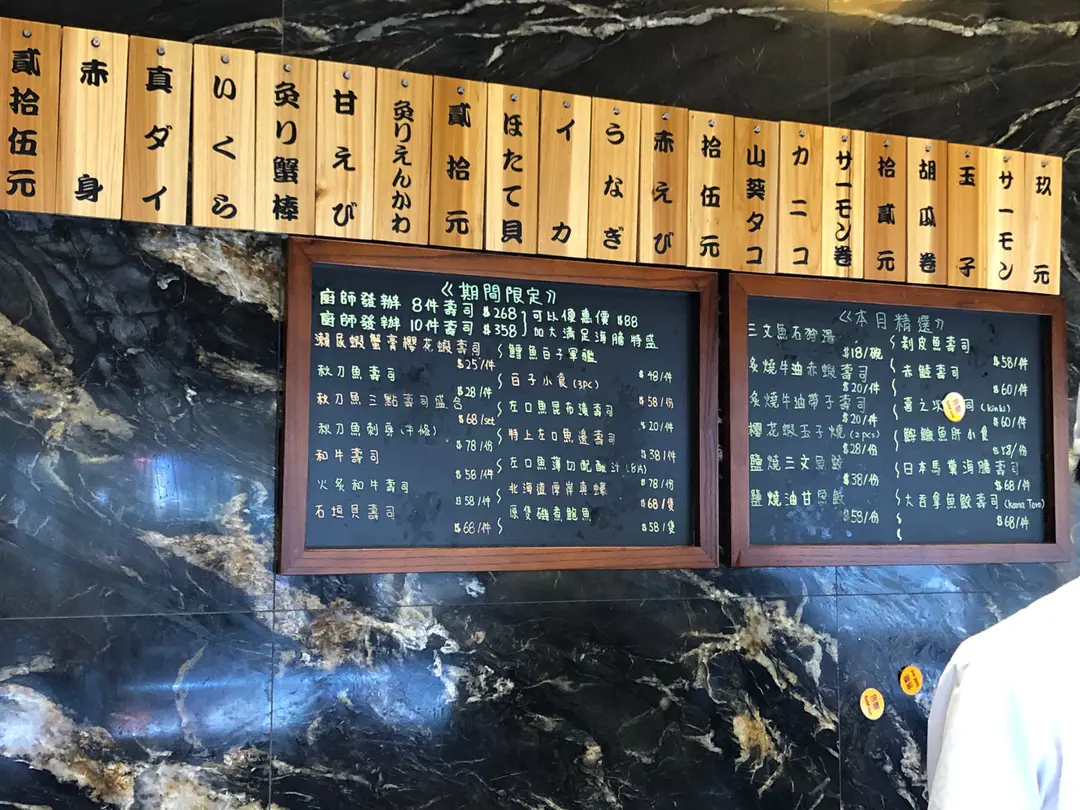 貳拾伍元
赤身
真ダイ
いくら
炙り蟹棒
甘えび
炙りえんかわ
貳拾元
ほたて貝
イカ
うなぎ
赤えび
拾伍元
山葵タコ
カニコ
サーモン巻
拾貳元
胡瓜巻
玉子
サーモン
玖元
《期間限定》
廚師發辦 8件壽司 $268 可以優惠價 $88
廚師發辦 10件壽司 $358 加大滿足海膽特盛
瀨尿蝦蟹膏櫻花蝦壽司 $25/件
秋刀魚壽司 $28/件
秋刀魚三點壽司盛合 $68/set
秋刀魚刺身(半條) $78/份
和牛壽司 $58/件
火炙和牛壽司 $58/件
石垣貝壽司 $68/件
鱈魚白子軍艦 $48/件
白子小食(3pc) $58/份
左口魚昆布漬壽司 $20/件
特上左口魚邊壽司 $38/件
左口魚薄切配酸汁(8片) $78/份
北海道厚岸真蠔 $68/隻
原隻磯煮鮑魚 $58/隻
《本月精選》
三文魚石狩湯 $18/碗
炙燒牛油赤蝦壽司 $20/件
炙燒牛油帶子壽司 $20/件
櫻花蝦玉子燒(2pcs) $28/份
鹽燒三文魚鮫 $38/份
鹽燒油甘魚鮫 $58/份
剝皮魚壽司 $58/件
赤鯥壽司 $60/件
喜之次 司(kinki) $60/件
鮟鱇魚肝小食 /份
日本馬糞海膽壽司 $68/件
大吞拿魚鮫壽司(kama Toro) $68/件